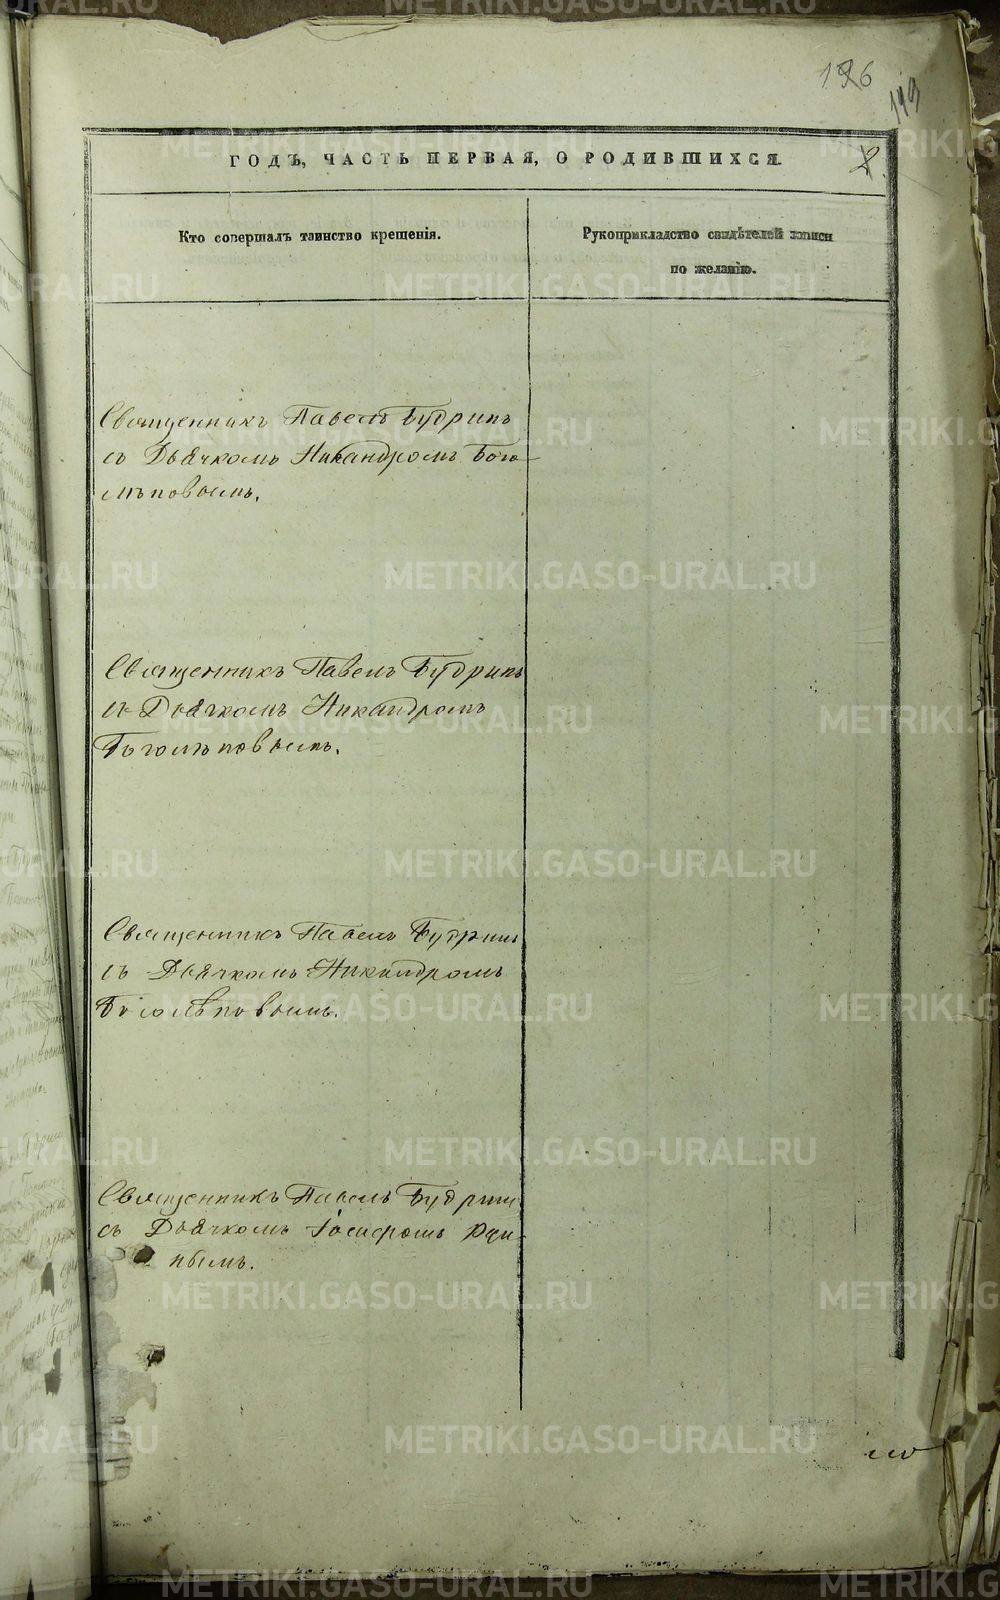 126
119
ГОДЪ, ЧАСТЬ ПЕРВАЯ, О РОДИВШИХСЯ.
2.
Кто совершалъ таинство крещенія.
Рукоприкладство свидѣтелей записи
по желанію.
Священникъ Павелъ Будринъ
съ Дьячкомъ Никандромъ Бого-
лѣповымъ.
Священникъ Павелъ Будринъ
съ Дьячкомъ Никандромъ
Боголѣповымъ.
Священникъ Павелъ Будринъ
съ Дьячкомъ Никандромъ
Боголѣповымъ.
Священникъ Павелъ Будринъ
съ Дьячкомъ Іосифомъ
нымъ.
METRIKI.GASO-URAL.RU